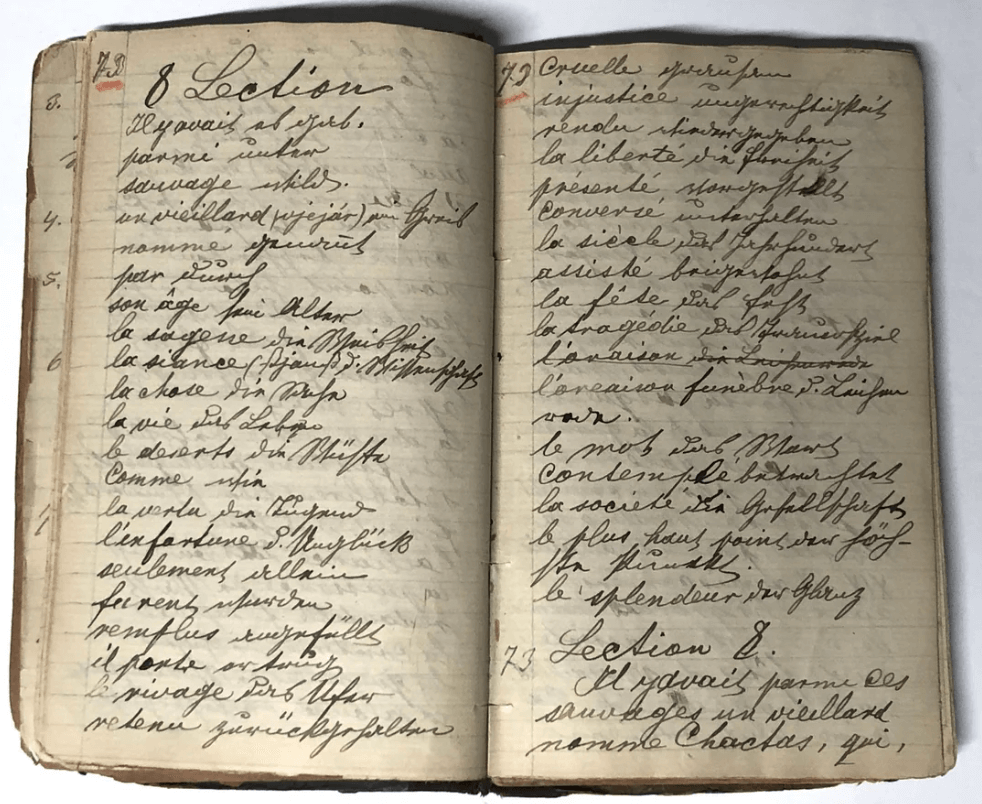 73
8 Lection
Il yavait es gab.
parmi unter
sauvage wild.
un vieillard (vjejár) ein Greis
nommé genannt
par durch
son âge sein Alter
la sagesse die Weisheit
la siance (sjanß) d. Wissenschaft
la chose die Sache
la vie das Leben
le deserts die Wüste
comme wie
la vertu die Tugend
l'infortune d. Unglück
seulement allein
furent wurden
remplus angefüllt
il porte er trug
le rivage das Ufer
retenu zurückgehalten
3.
4.
5.
6
73
Cruelle grausam
injustice ungerechtigkeit
rendu wiedergegeben
la liberté die Freiheit
présenté vorgestellt
conversé unterhalten
la siècle das Jahrhundert
assisté beigewohnt
la fête das Fest
la tragédie das Trauerspiel
l'oraison die Leichenrede
l'oreaison funèbre d. Leichen
rede.
le mot das Wort
contemplé betrachtet
la societé die Gesellschaft
le plus haut point der höch-
ste Punkt.
le splendeur der Glanz
73 Lection 8.
Il yavait parmi ces
sauvages un vieillard
nomme Chactas, qui,